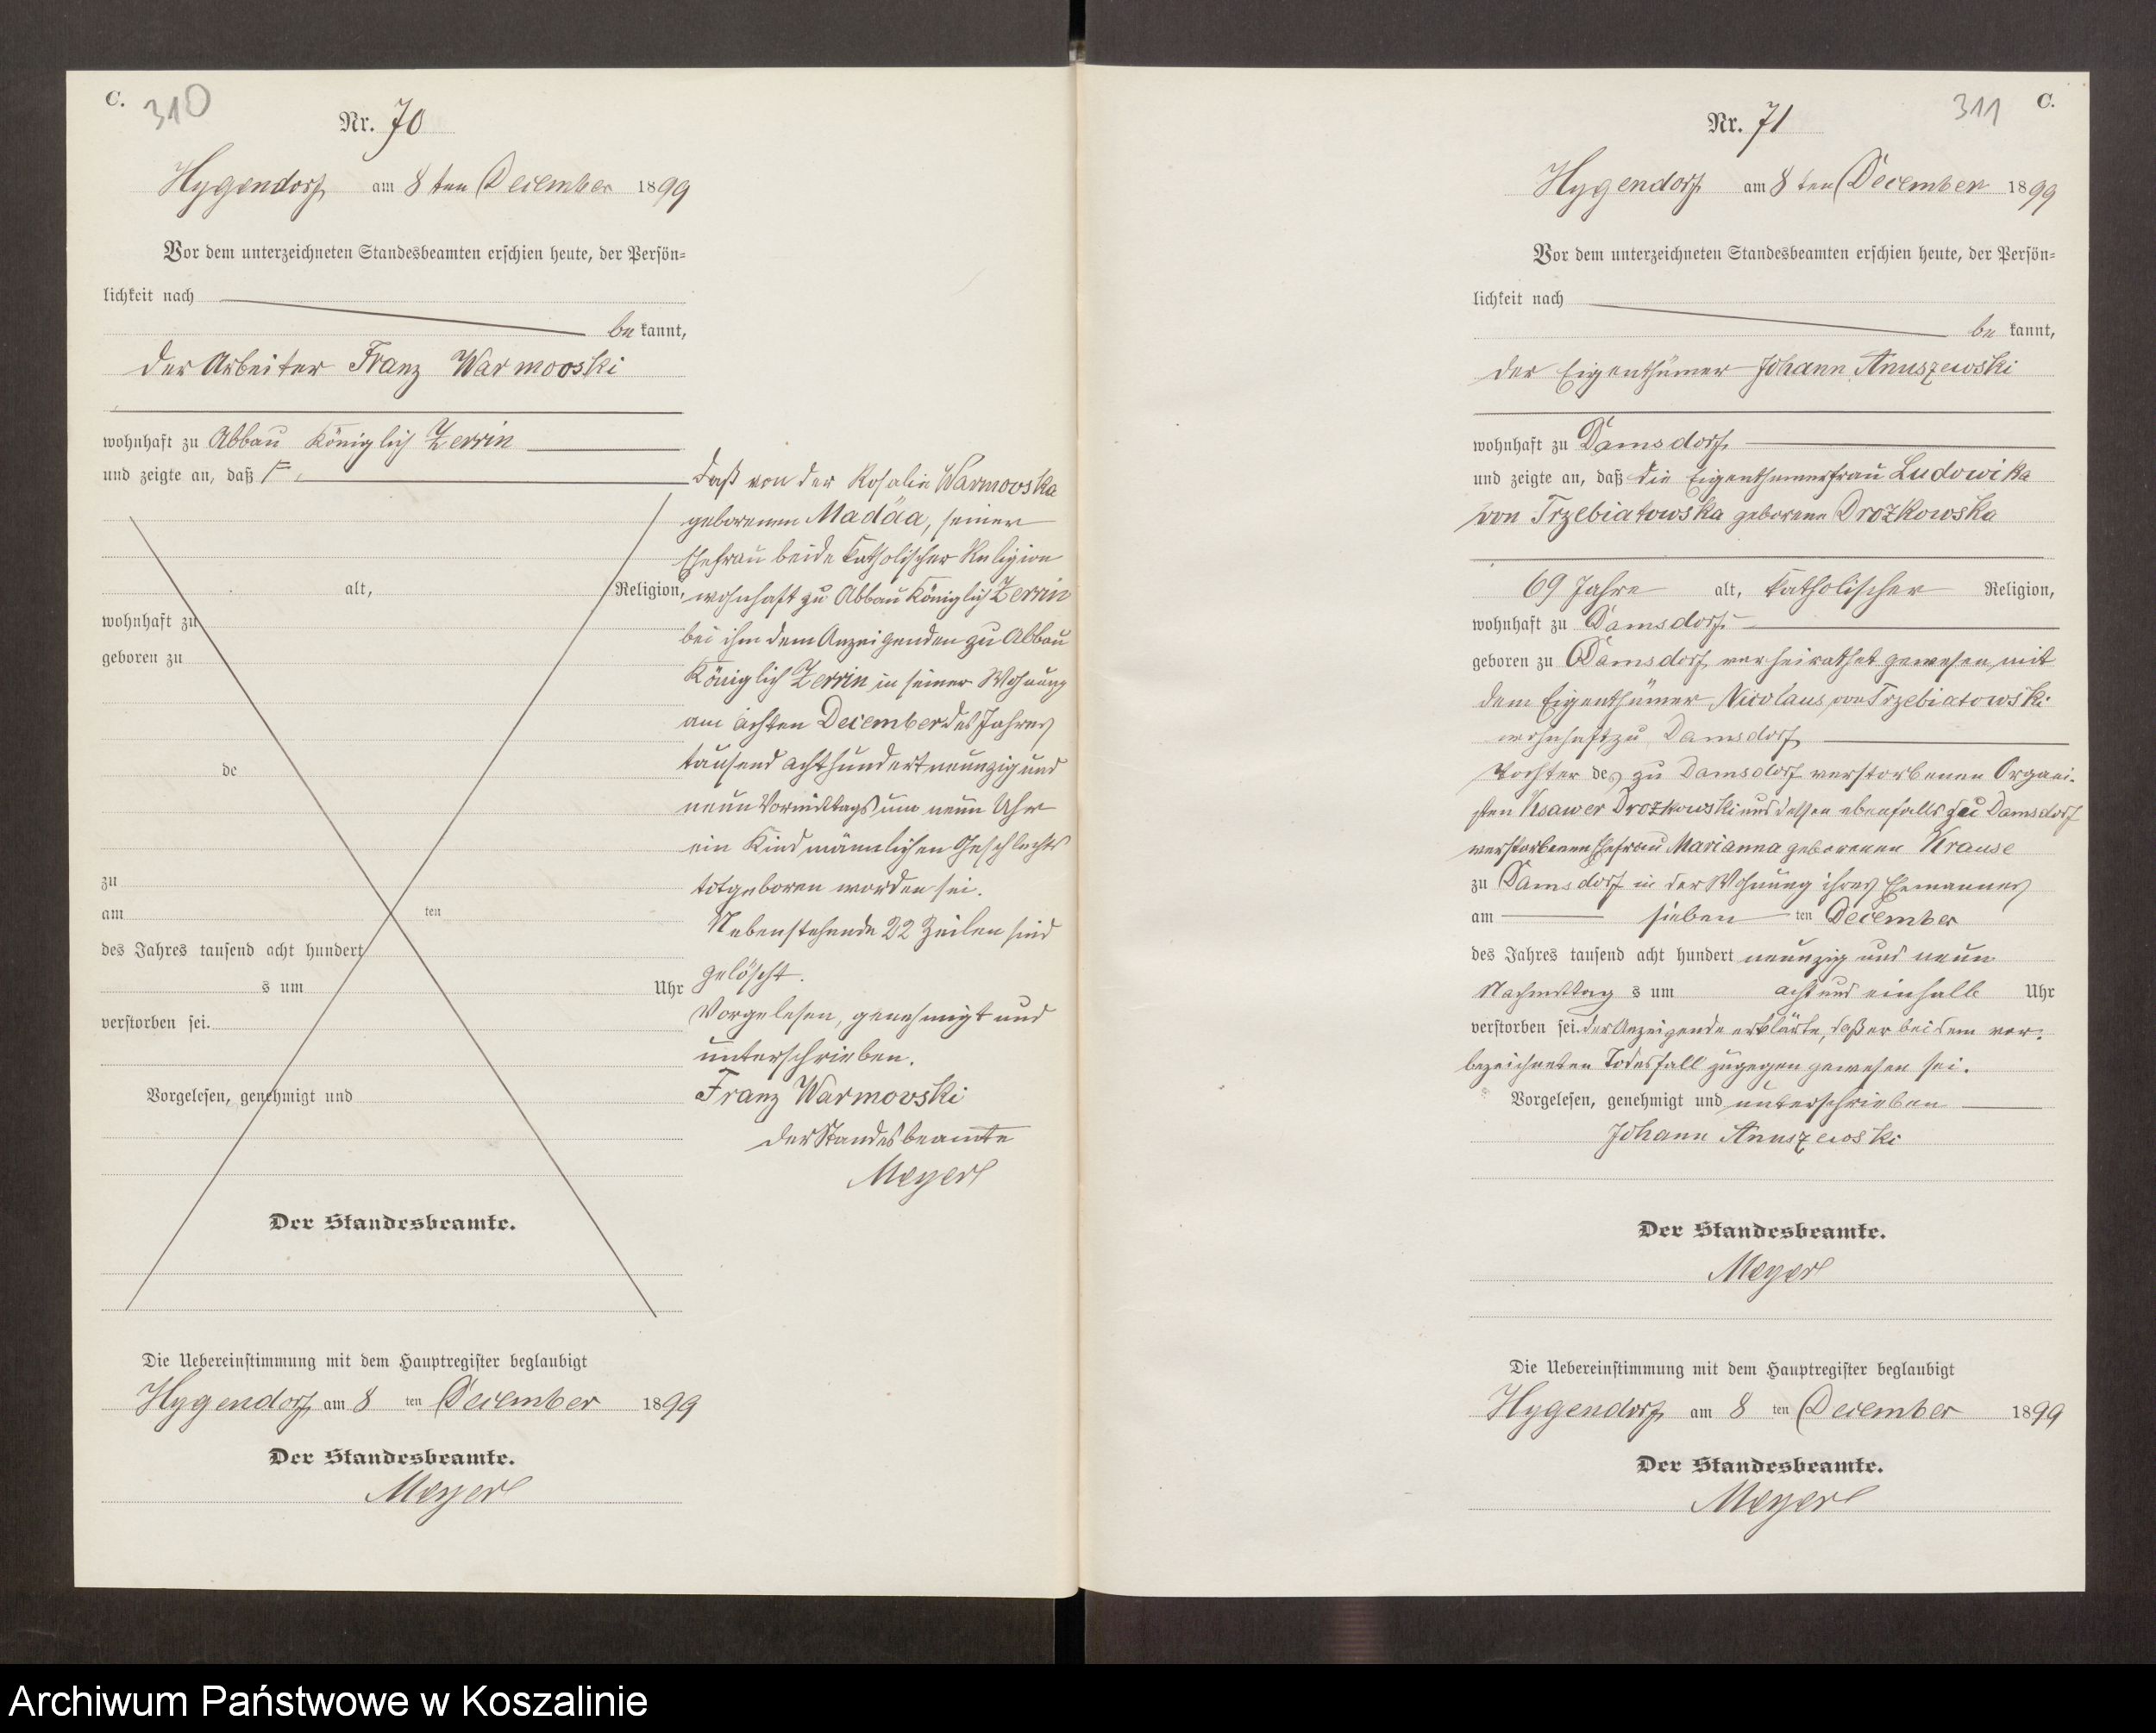 C.
310
Nr. 70
Hygendorf am 8 ten December 1899
Vor dem unterzeichneten Standesbeamten erschien heute, der Persön-
lichkeit nach
be kannt,
der Arbeiter Franz Warmooski
wohnhaft zu Abbau Königlich Zerrin
und zeigte an, daß
alt, Religion,
wohnhaft zu
geboren zu
de
zu
am ten
des Jahres tausend acht hundert
s um Uhr
verstorben sei.
Vorgelesen, genehmigt und
Der Standesbeamte.
daß von der Rosalie Warmovska
geborenen Madäa, seiner
Ehefrau beide katholischer Religion
wohnhaft zu Abbau Königlich Zerrin
bei ihm dem Anzeigenden zu Abbau
Königlich Zerrin in seiner Wohnung
am achten December des Jahres
tausend achthundert neunzig und
neun Vormittags um neun Uhr
ein Kind männlichen Geschlechts
totgeboren worden sei.
Nebenstehende 22 Zeilen sind
gelöscht.
Vorgelesen, genehmigt und
unterschrieben.
Franz Warmovski
der Standesbeamte
Meyer
Die Uebereinstimmung mit dem Hauptregister beglaubigt
Hygendorf am 8 ten December 1899
Der Standesbeamte.
Meyer
311
C.
Nr. 71
Hygendorf am 8 ten December 1899
Vor dem unterzeichneten Standesbeamten erschien heute, der Persön-
lichkeit nach
be kannt,
der Eigenthümer Johann Anuszewski
wohnhaft zu Damsdorf
und zeigte an, daß die Eigenthümerfrau Ludowika
von Trzebiatowska geborene Drozkowska
69 Jahre alt, katholischer Religion,
wohnhaft zu Damsdorf
geboren zu Damsdorf, verheirathet gewesen mit
dem Eigenthümer Nicolaus von Trzebiatowski
wohnhaft zu Damsdorf
Tochter des zu Damsdorf verstorbenen Organi-
sten Ksawer Drozkowski und dessen ebenfalls zu Damsdorf
verstorbenen Ehefrau Marianna geborenen Krause
zu Damsdorf in der Wohnung ihres Ehemannes
am sieben ten December
des Jahres tausend acht hundert neunzig und neun
Nachmittag s um acht und einhalb Uhr
verstorben sei. der Anzeigende erklärte, daß er bei dem vor-
bezeichneten Todesfall zugegen gewesen sei.
Vorgelesen, genehmigt und unterschrieben
Johann Anuszewski
Der Standesbeamte.
Meyer
Die Uebereinstimmung mit dem Hauptregister beglaubigt
Hygendorf am 8 ten December 1899
Der Standesbeamte.
Meyer
Archiwum Państwowe w Koszalinie